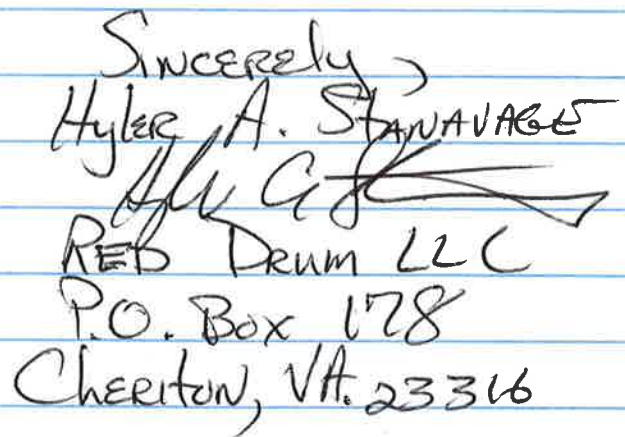 Sincerely,
Hyler A. Stanavage
RED Drum LLC
P.O. Box 178
Cheriton, VA. 23316